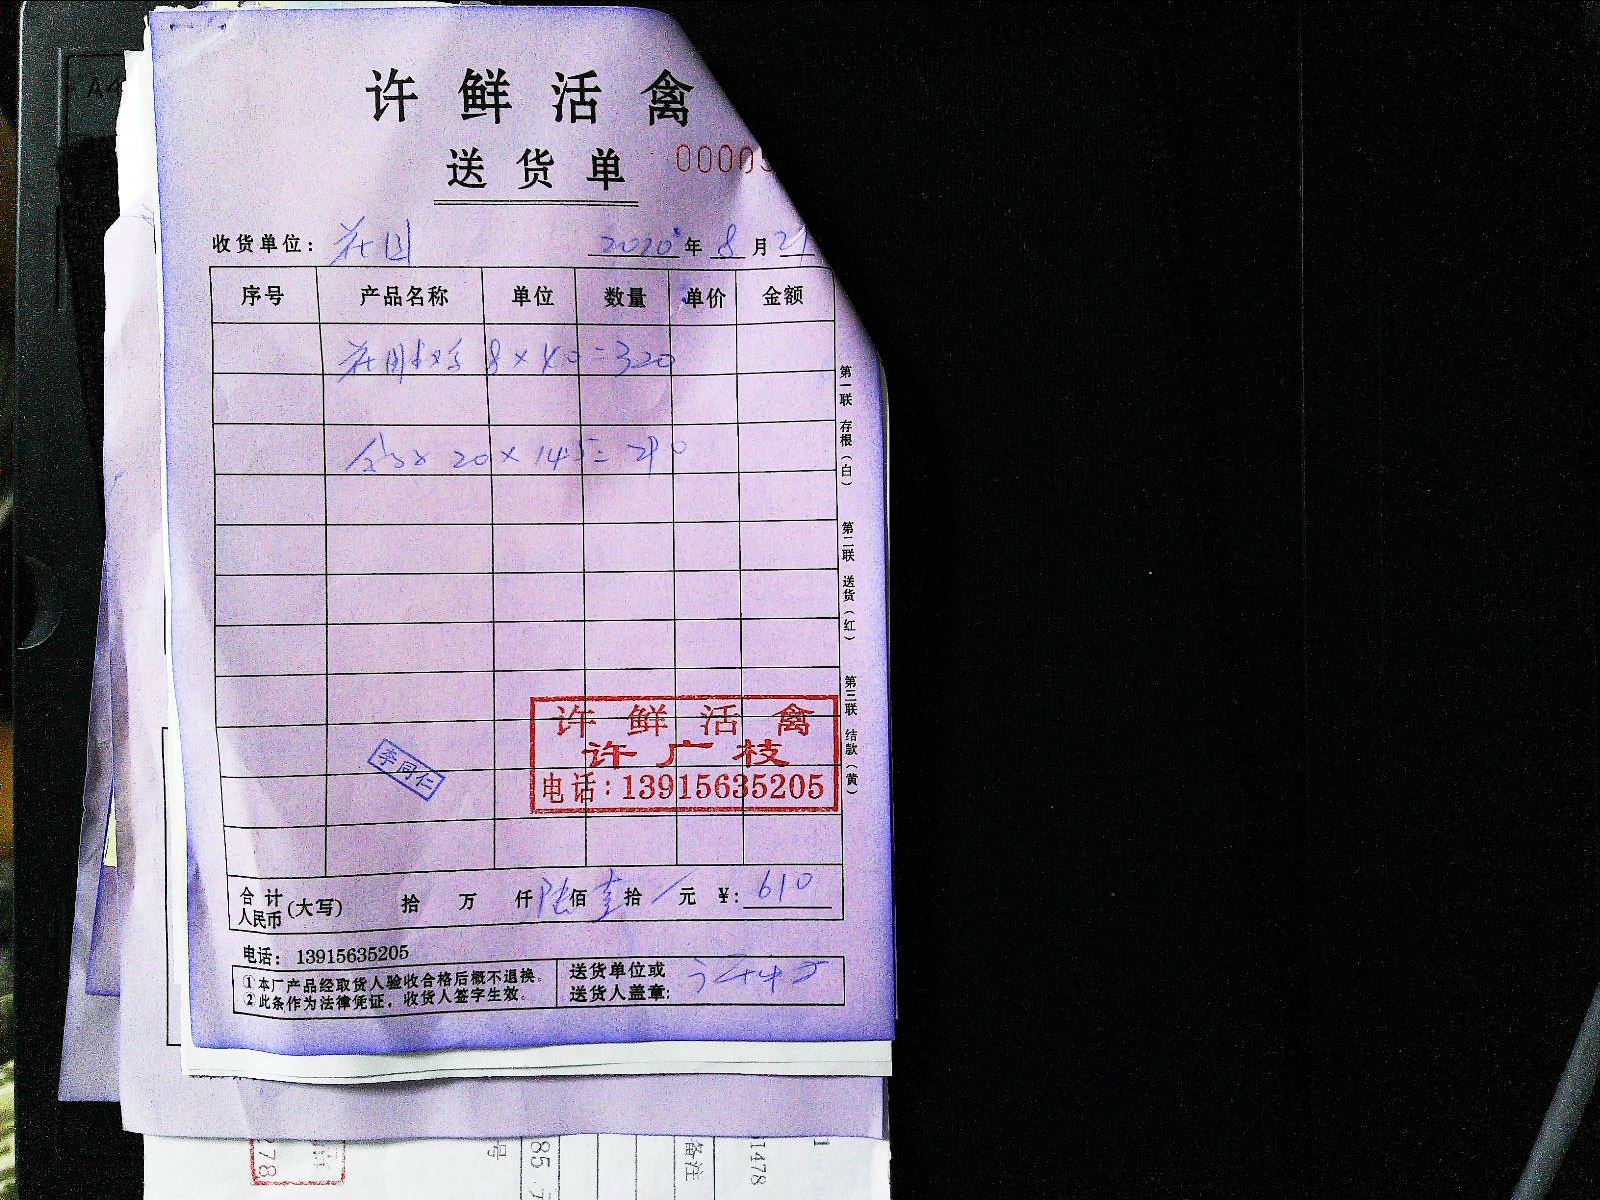 A4
许鲜活禽
送货单
0000
收货单位： 2020年8月21
序号 产品名称 单位 数量 单价 金额
8×40=320
20×145=290
第一联 存根（白） 第二联 送货（红） 第三联 结款（黄）
许鲜活禽
许广枝
电话：13915635205
李同仁
合计人民币(大写) 拾 万 仟陆佰壹拾/元 ¥:610
电话：13915635205
①本厂产品经取货人验收合格后概不退换。
②此条作为法律凭证，收货人签字生效。
送货单位或
送货人盖章:
278
号
85
备注
1478
1